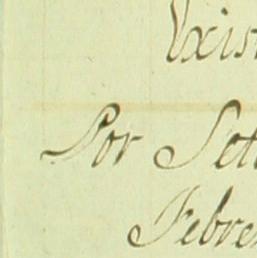 Exist
Por Set
Febre